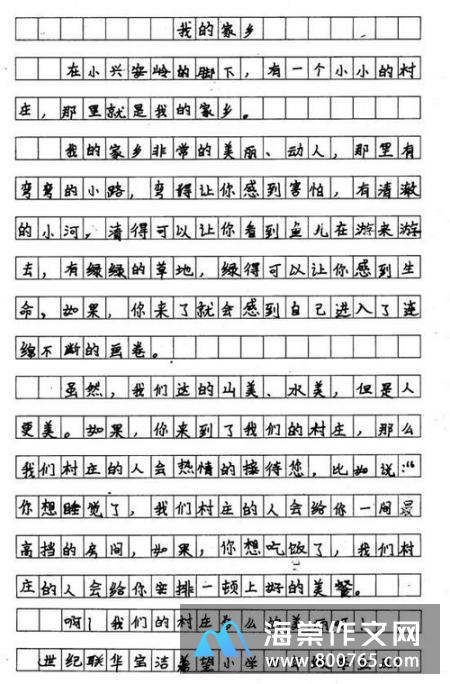 我的家乡
在小兴安岭的脚下，有一个小小的村
庄，那里就是我的家乡。
我的家乡非常的美丽、动人，那里有
弯弯的小路，弯得让你感到害怕，有清澈
的小河，清得可以让你看到鱼儿在游来游
去，有绿绿的草地，绿得可以让你感到生
命，如果，你来了就会感到自己进入了连
绵不断的画卷。
虽然，我们达的山美、水美，但是人
更美。如果，你来到了我们的村庄，那么
我们村庄的人会热情的接待您，比如说：“
你想睡觉了，我们村庄的人会给你一间最
高挡的房间，如果，你想吃饭了，我们村
庄的人会给你安排一顿上好的美餐。
啊！我们的村庄多么的美
世纪联华宝洁希望小学
海棠作文网
www.800765.com